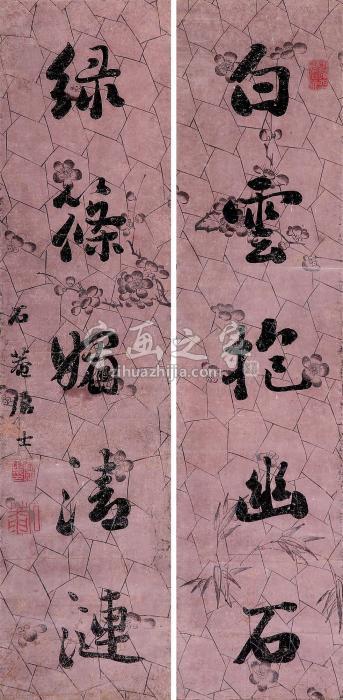 白雲抱幽石
綠篠媚清漣
石菴居士
字画之家
zihuazhijia.com